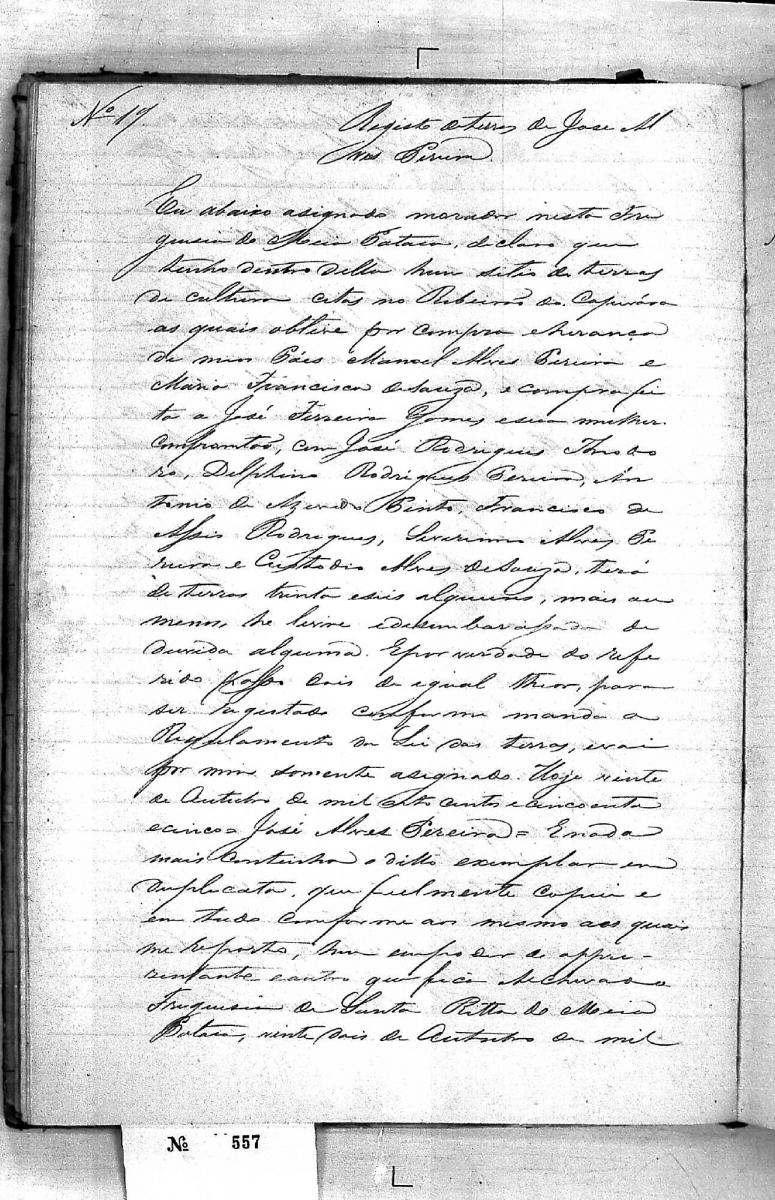 Nº 17
Registo de terras de Jose Al
ves Pereira
Eu abaixo asignado morador nesta Fre
guesia do Meia Pataca, declaro que
tenho dentro della hum sitio de terras
de cultura citas no Ribeirão do Capivára
as quais obtive por compra eherança
de meus Páes Manoel Alves Pereira e
Maria Francisca deSouza, e compra fei
ta a José Ferreira Gomes esua mulher
com José Rodrigues
ro, Delphino Rodrigues Pereira, An
tonio de Azevedo Pinto, Francisco de
Assis Rodrigues, Severino Alves Pe
reira e Custodio Alves deSouza, terá
de terras trinta eseis alqueires, mais ou
menos, he livre edesembaraçada de
duvida alguma. Epor verdade do refe
rido passo dois de igual theor, para
ser registado comforme manda o
Regulamento da Lei das terras, evai
por mim somente asignado. Hoje vinte
de Outubro de mil oito centos e cincoenta
ecinco = José Alves Pereira = Enada
mais continha o ditto exemplar em
duplicata, que fielmente copiei e
em tudo comforme aos mesmo aos quais
me reporto, hum empoder do appre-
zentante eoutro que fica Archivado
Freguesia de Santa Ritta do Meia
Pataca, vinte dois de Outubro de mil
Nº 557